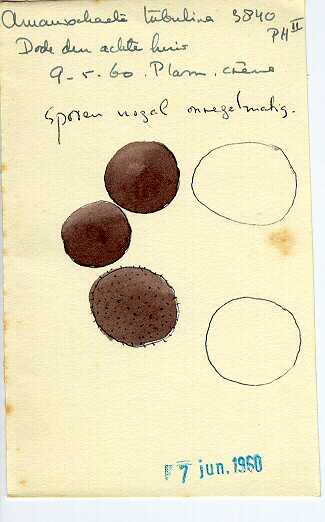 Amaurochaete tubulina 3840
PH II
Dode den achter huis
9-5-60. Plasm. crème
Sporen nogal onregelmatig.
7 jun. 1960